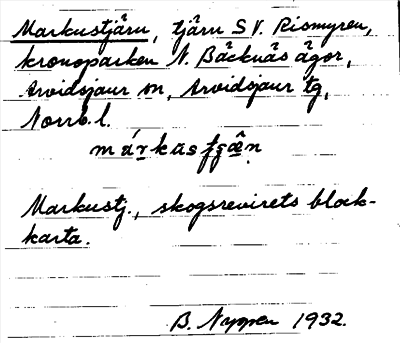 Markustjärn, tjärn SV. Rismyren,
kronoparken N. Bäcknäs ägor,
Arvidsjaur sn, Arvidsjaur tg,
Norrb. l.
Markustj., skogsrevirets block-
karta.
B. Nyppen 1932.